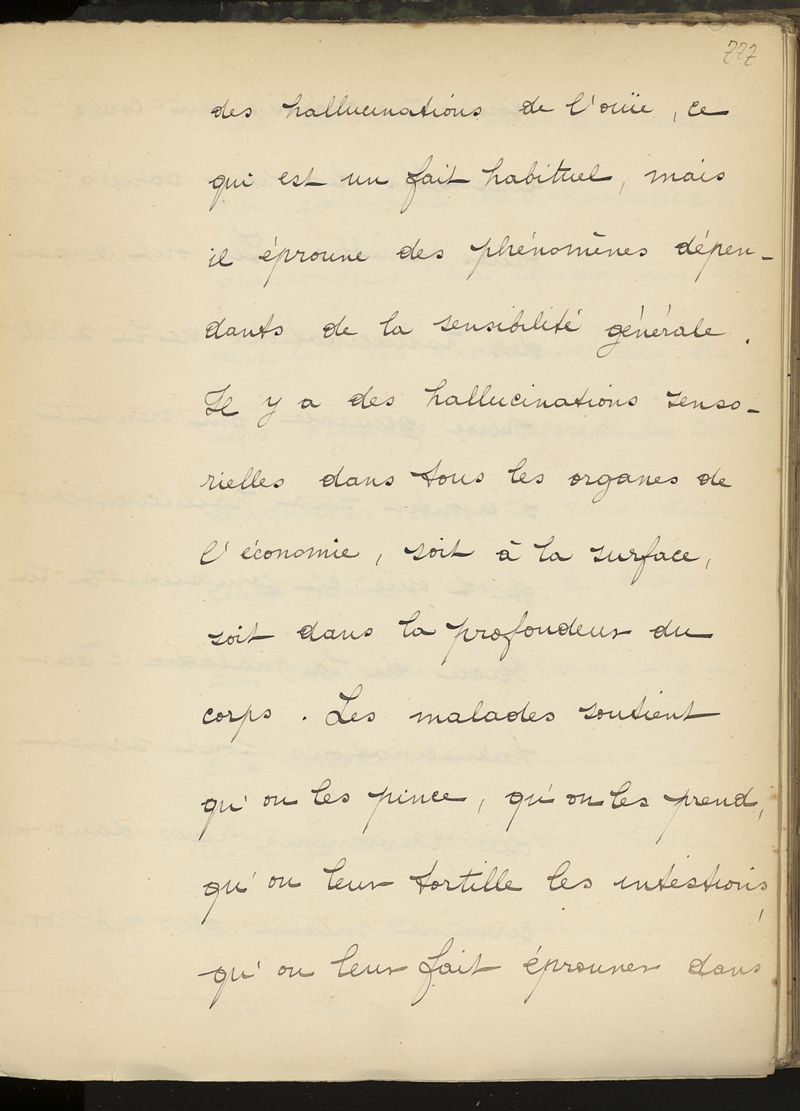 777
des hallucinations de l'ouïe, ce
qui est un fait habituel, mais
il éprouve des phénomènes dépen-
dants de la sensibilité générale.
Il y a des hallucinations senso-
rielles dans tous les organes de
l'économie, soit à la surface,
soit dans la profondeur du
corps. Les malades soutient
qu'on les pince, qu'on les prend,
qu'on leur tortille les intestions,
qu'on leur fait éprouver dans